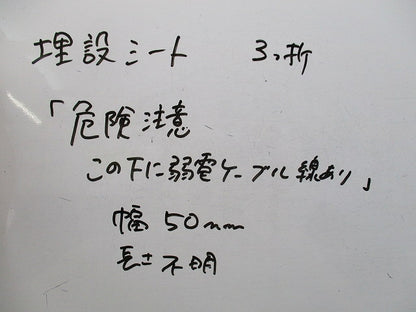 埋設シート 3っ折
「危険注意
この下に弱電ケーブル線あり」
幅 50mm
長さ不明